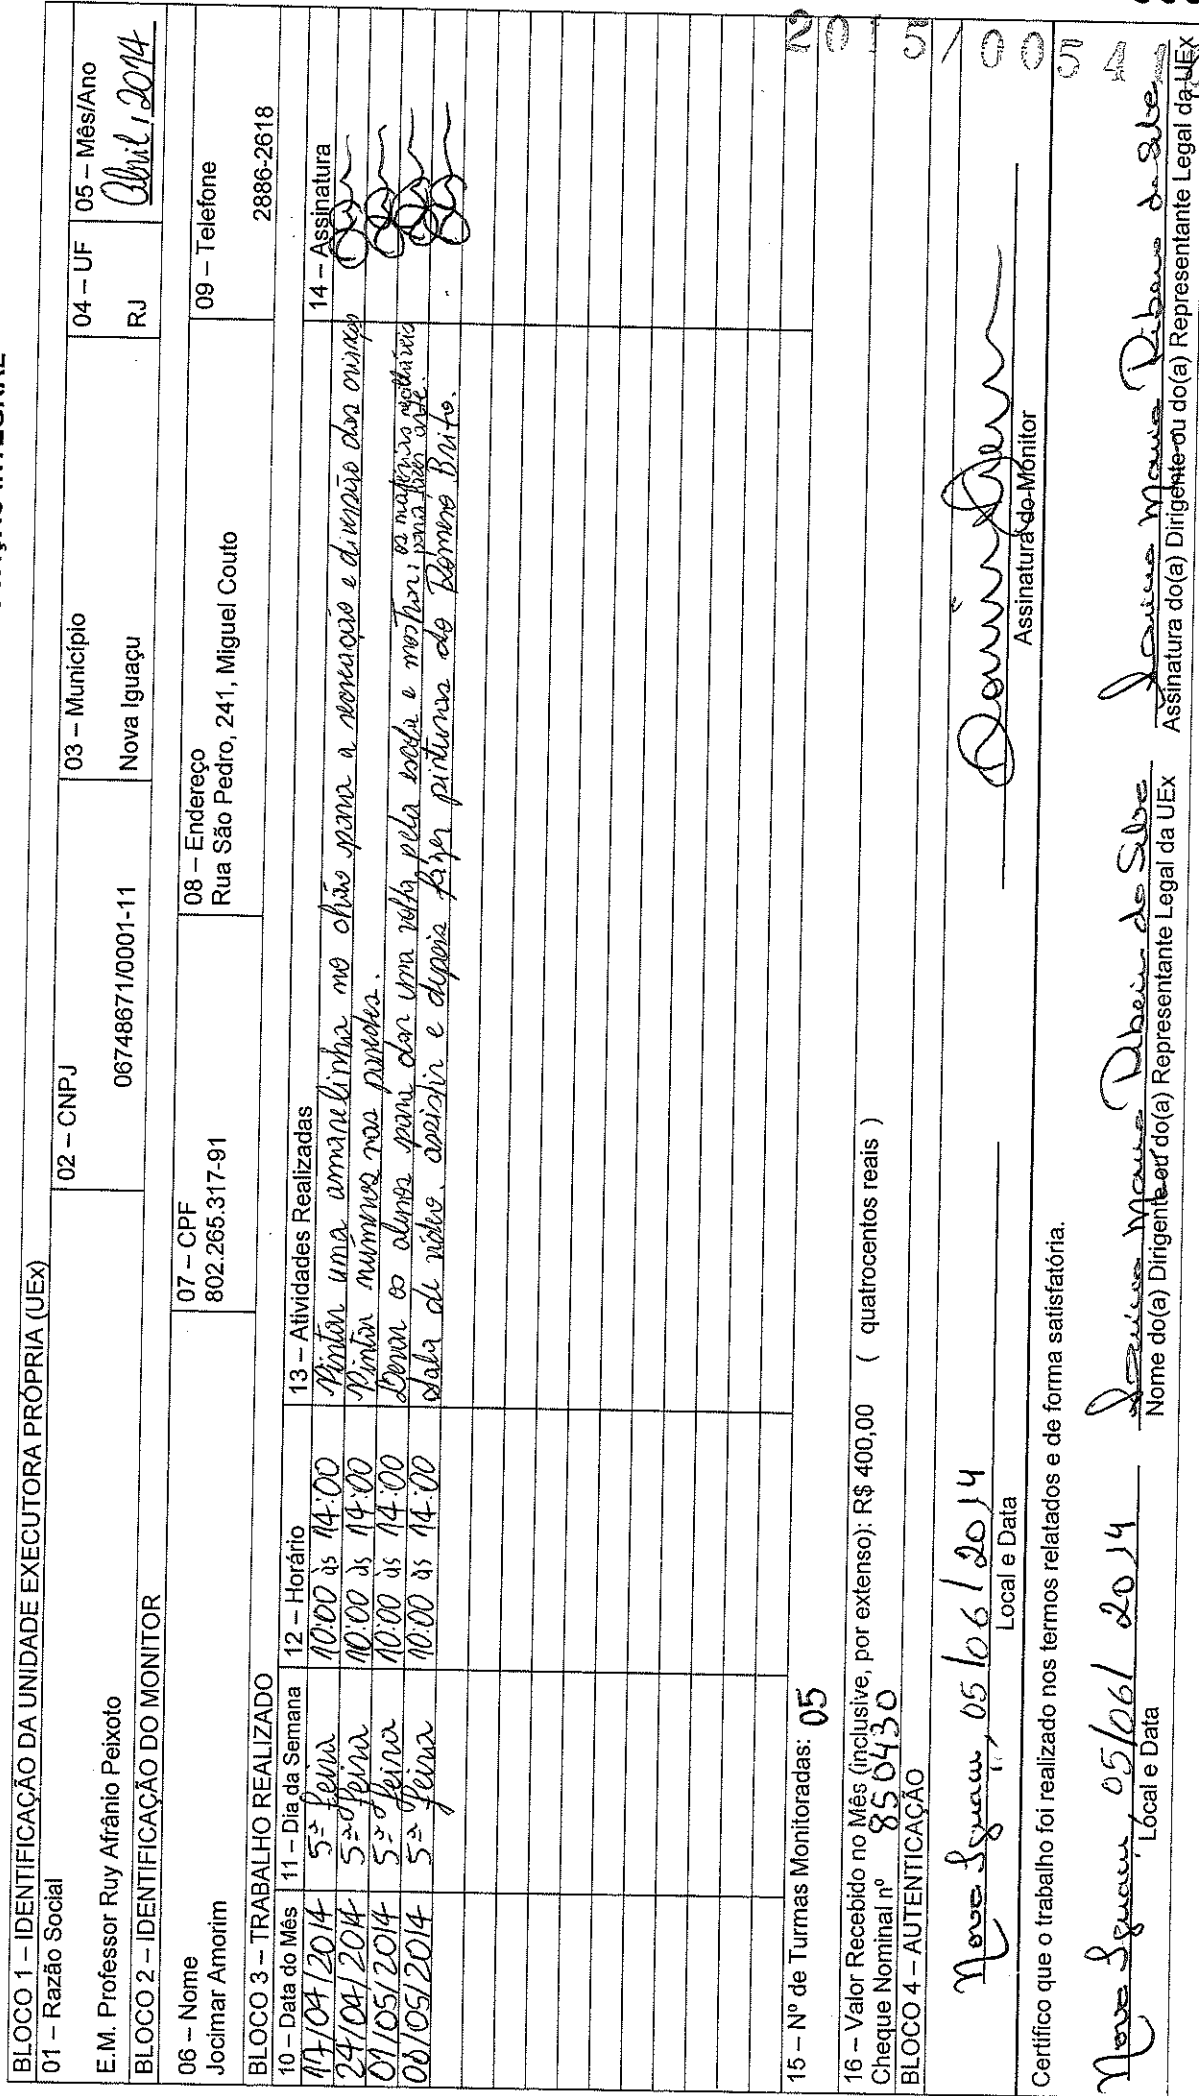 BLOCO 1 – IDENTIFICAÇÃO DA UNIDADE EXECUTORA PRÓPRIA (UEx)
01 – Razão Social
E.M. Professor Ruy Afrânio Peixoto
02 – CNPJ
06748671/0001-11
03 – Município
Nova Iguaçu
04 – UF
RJ
05 – Mês/Ano
Abril, 2014
BLOCO 2 – IDENTIFICAÇÃO DO MONITOR
06 – Nome
Jocimar Amorim
07 – CPF
802.265.317-91
08 – Endereço
Rua São Pedro, 241, Miguel Couto
09 – Telefone
2886-2618
BLOCO 3 – TRABALHO REALIZADO
10 – Data do Mês 11 – Dia da Semana 12 – Horário 13 – Atividades Realizadas 14 – Assinatura
17/04/2014 5ª feira 10:00 às 14:00 Pintar uma amarelinha no chão para a recreação e diversão das crianças
24/04/2014 5ª feira 10:00 às 14:00 Pintar números nas paredes.
01/05/2014 5ª feira 10:00 às 14:00 Levar os alunos para dar uma volta pela escola e mostrar; os materiais recicláveis para fazer arte.
08/05/2014 5ª feira 10:00 às 14:00 Sala de vídeo, assistir e depois fazer pinturas do Romero Brito.
15 – Nº de Turmas Monitoradas: 05
16 – Valor Recebido no Mês (inclusive, por extenso): R$ 400,00 ( quatrocentos reais )
Cheque Nominal nº 850430
BLOCO 4 – AUTENTICAÇÃO
Nova Iguaçu, 05/06/2014
Local e Data
Assinatura do Monitor
Certifico que o trabalho foi realizado nos termos relatados e de forma satisfatória.
Nova Iguaçu, 05/06/2014
Local e Data
Maria Ribeiro da Silva
Nome do(a) Dirigente ou do(a) Representante Legal da UEx
Maria Ribeiro da Silva
Assinatura do(a) Dirigente ou do(a) Representante Legal da UEx
2015/0054